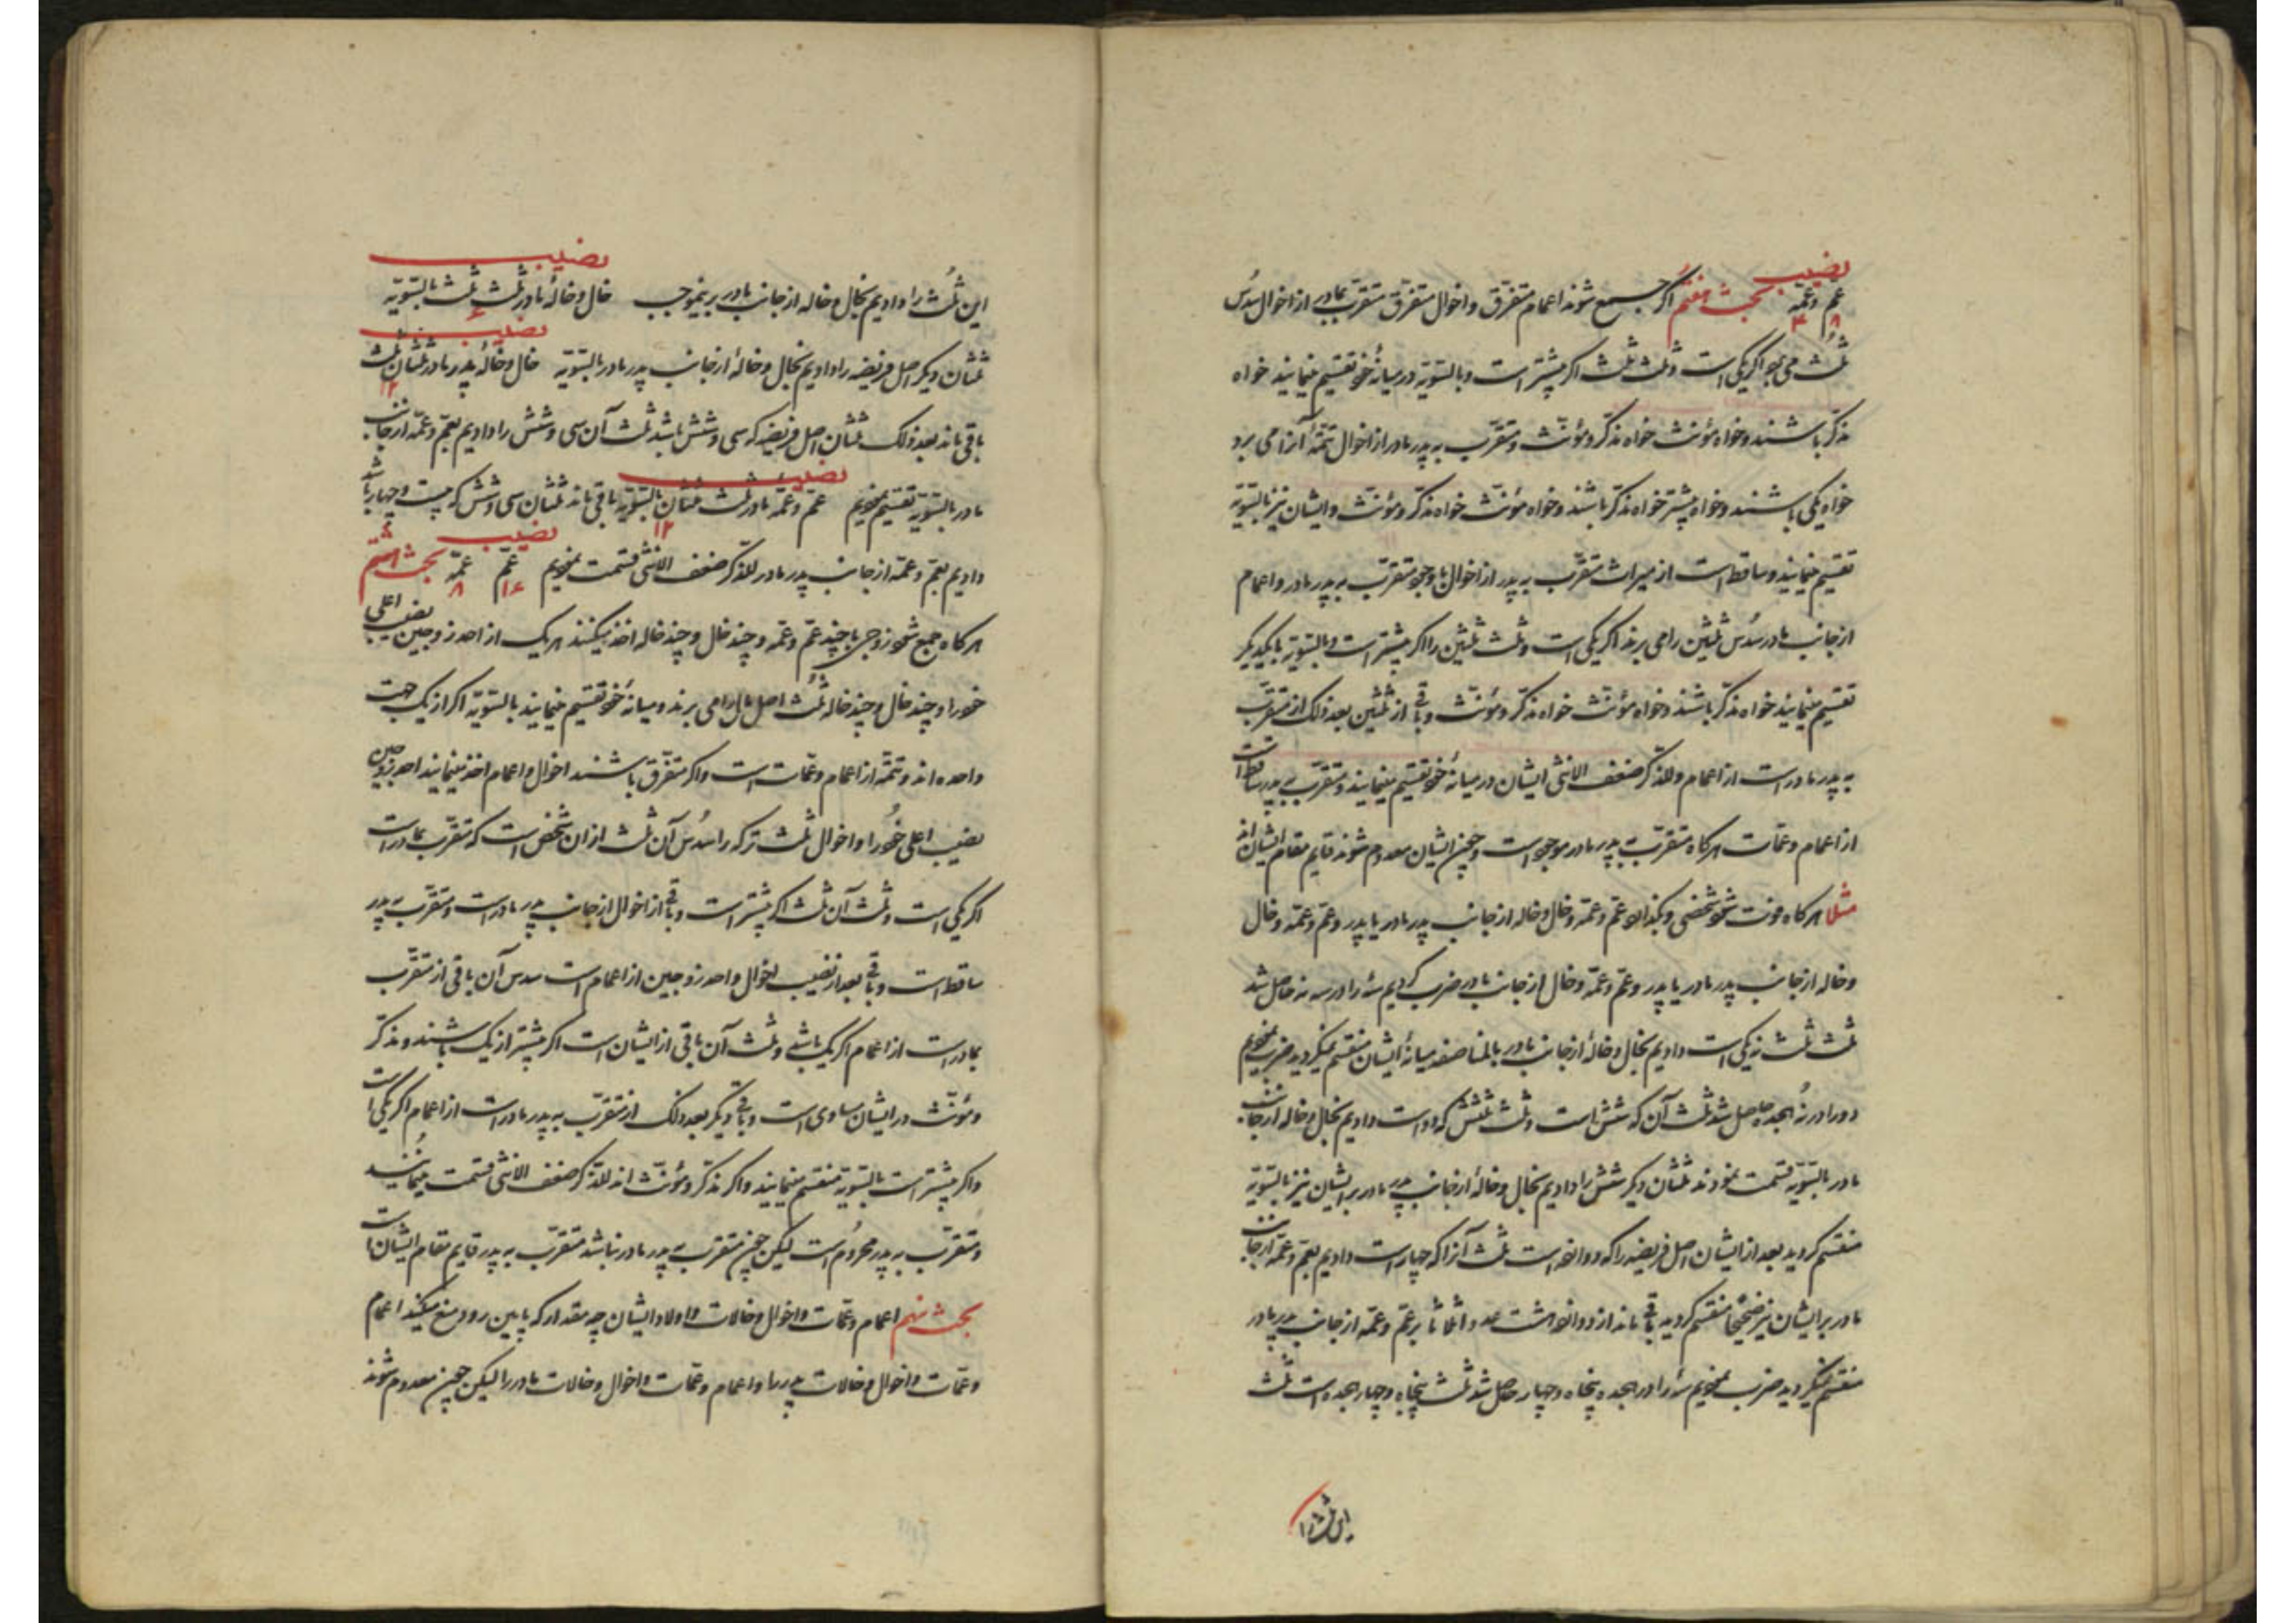 نصیب
عم وعمّه بحث هفتم اکر جمیع شوند اعمام متفرق و اخوال متفرق متقرّب بمادر از اخوال سدس
۸ ۴
ثلث می برد اکر یکی است و ثلث ثلث اکر پیشتر است و بالتسویّه در میانهٔ خود تقسیم مینمایند خواه
مذکّر باشند و خواه مؤنث خواه مذکر و مؤنّث و متقرّب به پدر مادر از اخوال تتمّهٔ آنرا می برد
خواه یکی باشند و خواه پیشتر خواه مذکر باشند و خواه مؤنّث خواه مذکر و مؤنّث و ایشان نیز بالتسویّه
تقسیم مینمایند و ساقط است از میراث متقرّب به پدر از اخوال با وجود متقرّب به پدر مادر و اعمام
از جانب مادر سُدس ثلثین را می برند اکر یکی است و ثلث ثلثین را اکر پیشتر است و بالتسویّه بایکدیکر
تقسیم مینمایند خواه مذکّر باشند و خواه مؤنّث خواه مذکّر و مؤنّث و باقی از ثلثین بعد ذلک از متقرّب
به پدر مادر است از اعمام و للذکر ضعف الانثی ایشان در میانهٔ خود تقسیم مینمایند و متقرّب به پدر ساقط است
از اعمام و عمّات هرکاه متقرّب به پدر مادر موجود است و چون ایشان معدوم شوند قایم مقام ایشان اند
مثلا هرکاه فوت شود شخصی و بکذارد عمّ و عمّه و خال و خاله از جانب پدر مادر یا پدر و عمّ و عمّه و خال
و خاله از جانب پدر مادر یا پدر و عمّ و عمّه و خال از جانب مادر ضرب کردیم سه را در سه نه حاصل شد
ثلث ثلث نه یکی است دادیم بخال و خالهٔ از جانب مادر بالمناصفه میانهٔ ایشان منقسم نمیکردید ضرب نمودیم
دو را در نُه هجده حاصل شد ثلث آن که شش است و ثلث شش که دو است دادیم بخال و خاله از جانب
مادر بالتسویّه قسمت نمودند ثلثان دیکر شش را دادیم بخال و خالهٔ از جانب پدر مادر بر ایشان نیز بالتسویّه
منقسم کردید بعد از ایشان اصل فریضه را که دوازده است ثلث آنرا که چهار است دادیم بعمّ و عمّه از جانب
مادر بر ایشان نیز صحیحًا منقسم کردید باقی ماند از دوازده هشت عدد و اثلاثا بر عمّ و عمّه از جانب پدر مادر
منقسم نمیکردید ضرب نمودیم سه را در هجده پنجاه و چهار حاصل شد ثلث پنجاه و چهار هجده است ثلث
این ثلث را
نصیب
این ثُلث را دادیم بخال و خاله از جانب مادر برینموجب خال و خالهٔ مادر ثلث ثلث بالتسویّه
۶ نصیب
ثلثان دیکر اصل فریضه را دادیم بخال و خالهٔ از جانب پدر مادر بالتسویّه خال و خالهٔ پدر مادر ثلثان ثلث
۱۲
باقی ماند بعد ذلک ثلثان اصل فریضه که سی و شش باشد ثلث آن سی و شش را دادیم بعمّ و عمّه از جانب
نصیب
مادر بالتسویّه تقسیم نمودیم عمّ و عمّه مادر ثلث ثلثان بالتسویّه باقی ماند ثلثان سی و شش که بیست و چهار باشد
۱۲ نصیب
دادیم بعمّ و عمّه از جانب پدر مادر للذکر ضعف الانثی قسمت نمودیم عمّ عمّه بحث هشتم
۱۶ ۸
هرکاه جمع شود زوجی با چند عمّ و عمّه و چند خال و چند خاله اخذ میکنند هریک از احد زوجین نصیب اعلی
خود را و چند خال و چند خاله ثُلث اصل مال را می برند و میانهٔ خود تقسیم مینمایند بالتسویّه اکر از یک جهت
واحده اند و تتمّه از اعمام و عمّات است و اکر متفرّق باشند اخوال و اعمام اخذ مینمایند احد زوجین
نصیب اعلی خود را و اخوال ثلث ترکه را سُدس آن ثلث از ان شخص است که متقرّب بمادر است
اکر یکی است و ثلث آن ثلث اکر پیشتر است و باقی از اخوال از جانب پدر مادر است و متقرّب به پدر
ساقط است و باقی بعد از نصیب اخوال و احد زوجین از اعمام است سدس آن باقی از متقرّب
بمادر است از اعمام اکر یک باشد و ثلث آن باقی از ایشان است اکر پیشتر از یک باشند و مذکّر
و مؤنّث در ایشان مساوی است و باقی دیکر بعد ذلک از متقرّب به پدر مادر است از اعمام اکر یکی است
و اکر پیشتر است بالتسویّه منقسم مینمایند و اکر مذکّر و مؤنّث اند للذکر ضعف الانثی قسمت مینمایند
و متقرّب به پدر محروم است لیکن چون متقرّب به پدر مادر نباشد متقرّب به پدر قایم مقام ایشان است
بحث نهم اعمام و عمّات و اخوال و خالات و اولاد ایشان چه مقدار که پایین رود منع میکند اعمام
و عمّات و اخوال و خالات پدر را و اعمام و عمّات و اخوال و خالات مادر را لیکن چون معدوم شوند